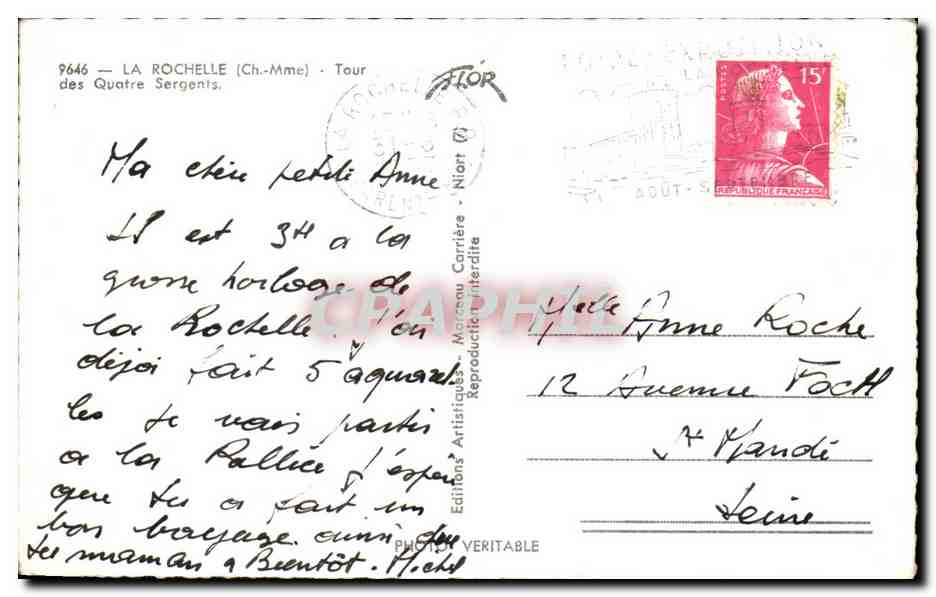 9646 — LA ROCHELLE (Ch.-Mme) - Tour
des Quatre Sergents.
FLOR
LA ROCHELLE
POSTES
15F
REPUBLIQUE FRANÇAISE
AOÛT - SEPTEMBRE
Ma chère petite Anne
Il est 3H a la
grosse horloge de
la Rochelle. J'ai
déjà fait 5 aquarel
les Je vais partir
a la Pallice J'espère
que tu a fait un
bon voyage ainsi que
ta maman a Bientôt. Michel
Editions Artistiques - Marceau Carrière - Niort
Reproduction interdite
PHOTO VERITABLE
CPAPHIL
Melle Anne Roche
12 Avenue Foch
St Mandé
Seine